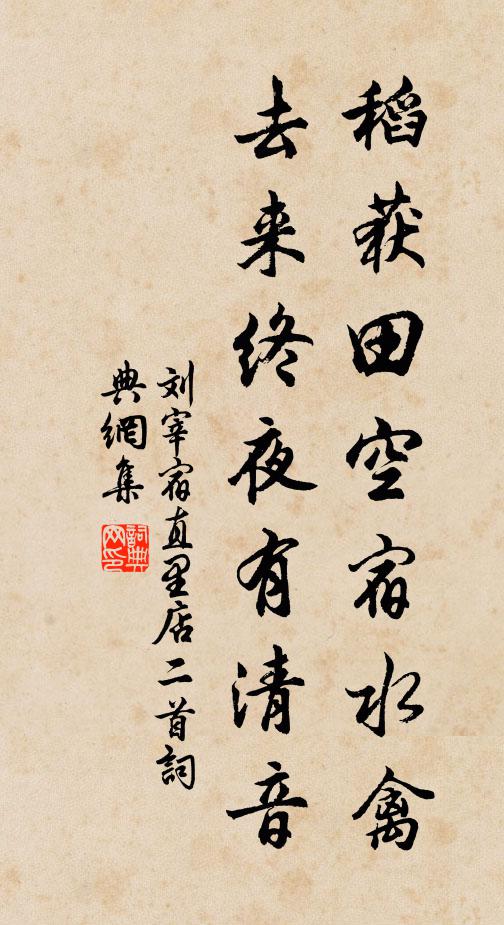 稻获田空宿水禽
去来终夜有清音
刘宰宿直里店二首詞
典網集
詞典網印